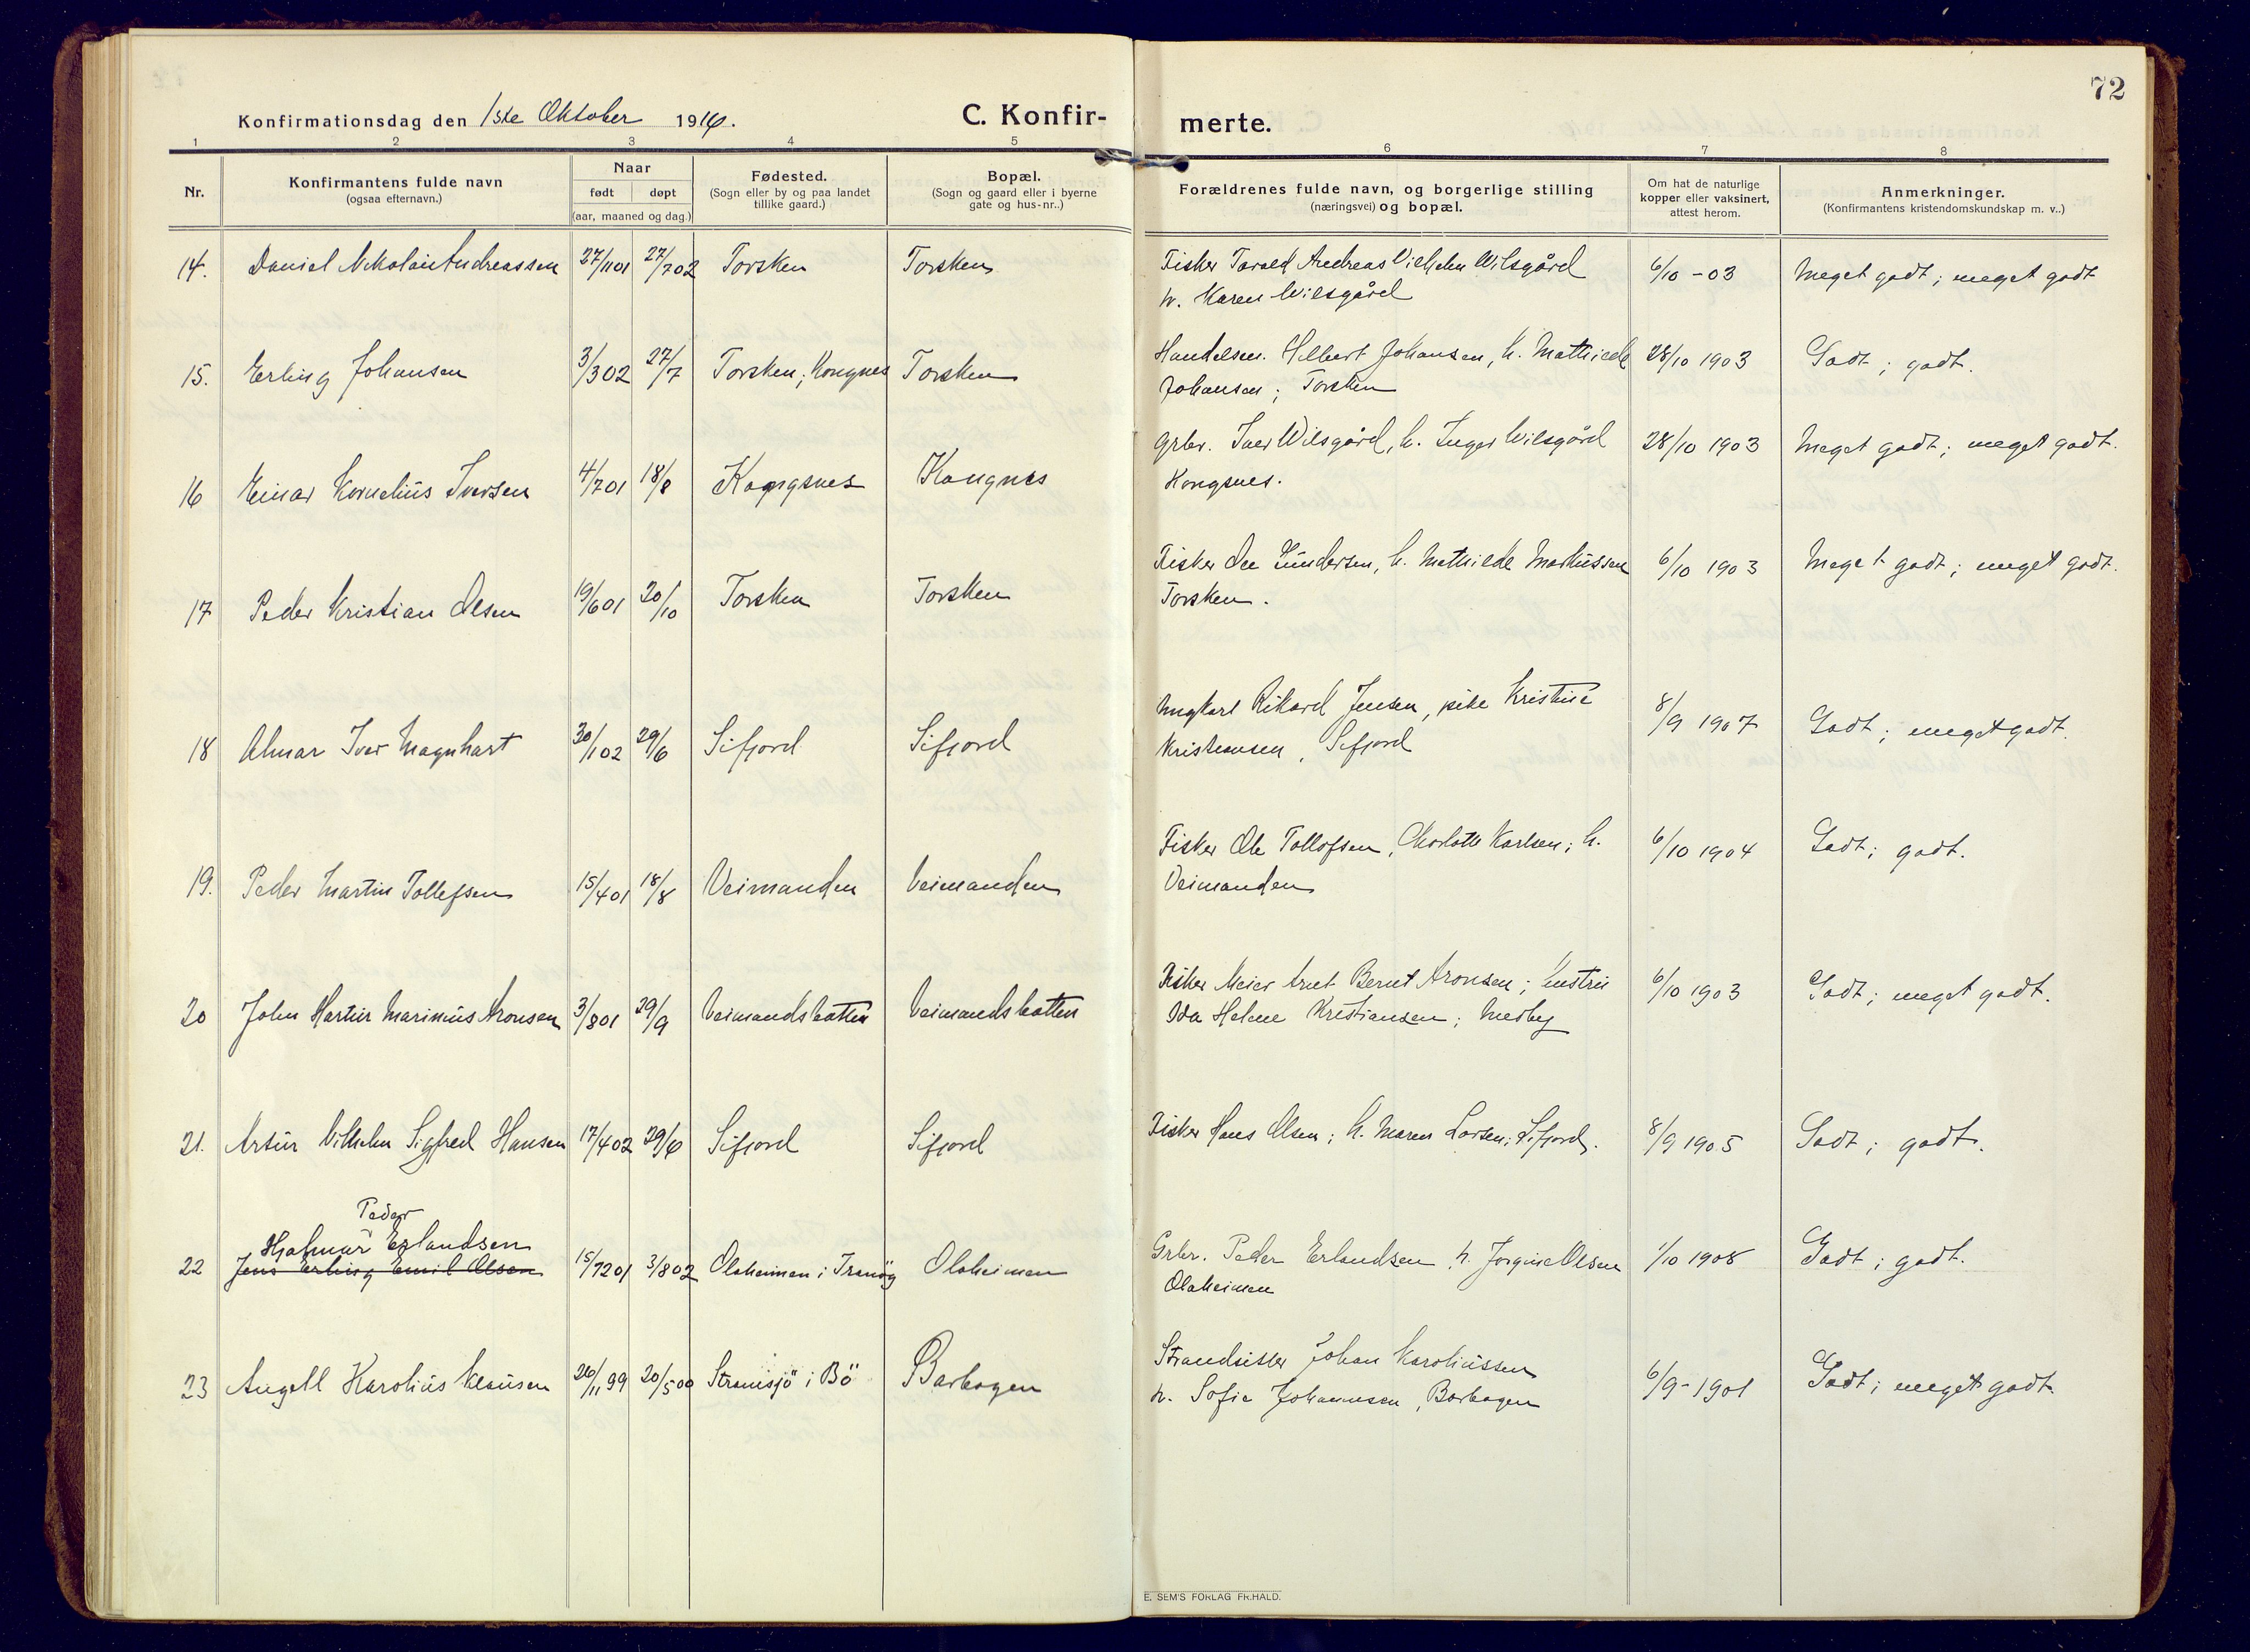 72
Konfirmationsdag den 1ste Oktober 1916. C. Konfir-
merte.
1 2 3 4 5
6 7 8
Nr.
Konfirmantens fulde navn
(ogsaa efternavn.)
Naar
født døpt
(aar, maaned og dag.)
Fødested.
(Sogn eller by og paa landet
tillike gaard.)
Bopæl.
(Sogn og gaard eller i byerne
gate og hus-nr..)
Forældrenes fulde navn, og borgerlige stilling
(næringsvei) og bopæl.
Om hat de naturlige
kopper eller vaksinert,
attest herom.
Anmerkninger.
(Konfirmantens kristendomskundskap m. v..)
14. Daniel Nikolai Andreassen 27/1101 27/702 Torsken Torsken
Fisker Andreas Vilhelm Wilsgård 6/10 -03 Meget godt; meget godt
h. Karen Wilsgård
15. Erling Johansen 3/302 27/7 Torsken; Kongnes Torsken
Handelsm. Hilbert Johansen, h. Mathilde 28/10 1903 Godt; godt.
Johansen; Torsken
16 Einar Kornelius Iversen 4/701 18/8 Kongsnes Kongnes
Grbr. Iver Wilsgård, h. Inger Wilsgård 28/10 1903 Meget godt; meget godt.
Kongsnes.
17 Peder Kristian Olsen 19/601 20/10 Torsken Torsken
Fisker Ole Gundersen, h. Mathilde Markussen 6/10 1903 Meget godt; meget godt.
Torsken.
18 Almar Iver Magnhart 30/102 29/6 Sifjord Sifjord
Ungkarl Rikard Jensen, pike Kristine 8/9 1907 Godt; meget godt.
Kristiansen, Sifjord
19. Peder Martin Tollefsen 15/401 18/8 Veimanden Veimanden
Fisker Ole Tollofsen, Charlotte Karlsen; h. 6/10 1904 Godt; godt.
Veimanden
20 John Hartur Marinius Aronsen 3/801 29/9 Veimandsbotten Veimandsbotten
Fisker Meier Arnt Bernt Aronsen; hustru 6/10 1903 Godt; meget godt.
Ida Helene Kristiansen; Medby
21. Artur Vilhelm Sigfred Hansen 17/402 29/6 Sifjord Sifjord
Fisker Hans Olsen; h. Maren Larsen; Sifjord. 8/9 1905 Godt; godt.
Peder
Hjalmar Erlandsen
22 Jens Erling Emil Olsen 15/1201 3/802 Olaheimen i Tranøy Olaheimen
Grbr. Peder Erlandsen, h. Jorgine Olsen 1/10 1908 Godt; godt.
Olaheimen
23 Angell Karolius Klausen 26/11 99 20/500 Straumsjö i Bö Barbogen
Strandsitter Johan Karoliussen 6/9-1901 Godt; meget godt.
h. Sofie Johannesen, Barbogen
E. SEM'S FORLAG FR.HALD.